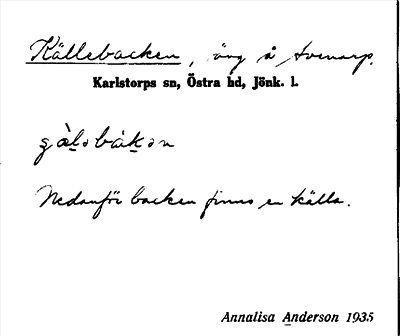 Källebacken, äng å
Karlstorps sn, Östra hd, Jönk. l.
Nedanför backen finns en källa.
Annalisa Anderson 1935